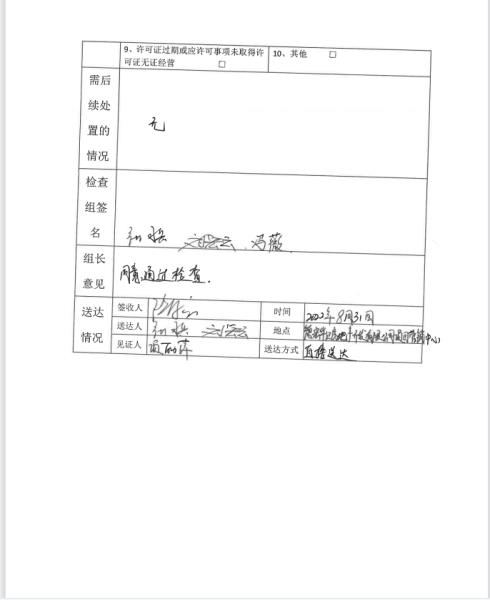 9、许可证过期或应许可事项未取得许 10、其他 □
可证无证经营 □
需后
续处
置的
情况
无
检查
组签
名
冯薇
组长
意见
同意通过检查.
送达
情况
签收人
时间 2022年8月31日
送达人
地点
见证人
送达方式 直接送达